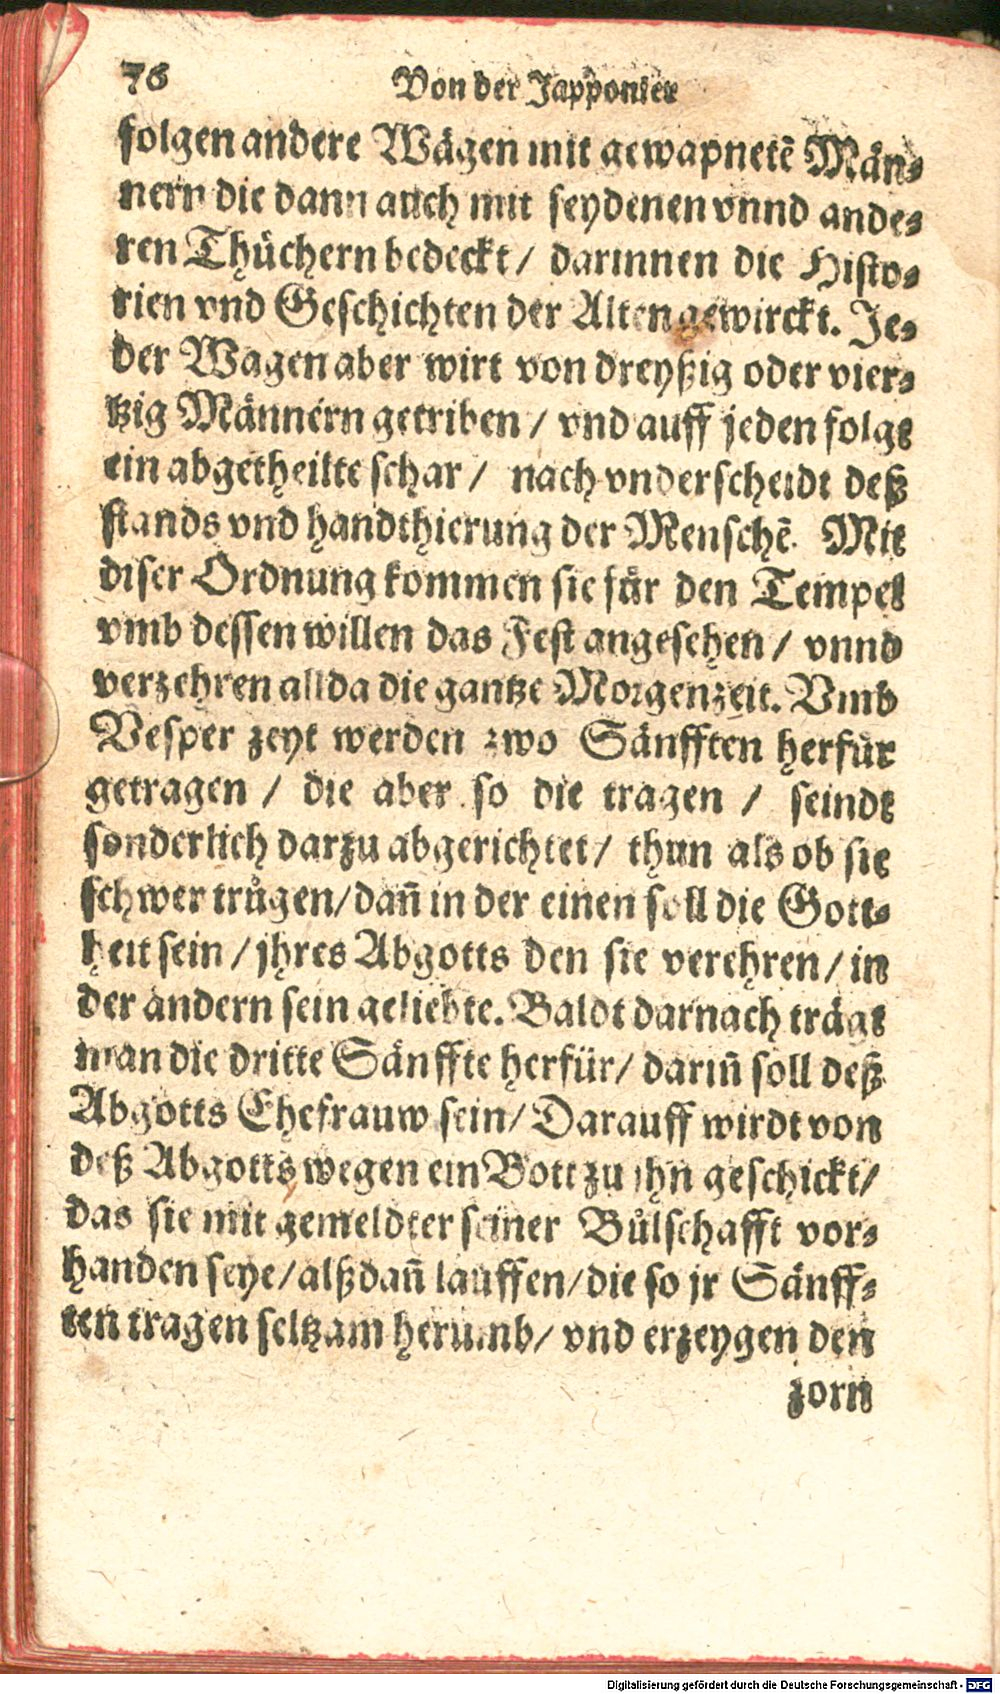 76 Von der Japponier
folgen andere Wägen mit gewapnetẽ Män-
nern die dann auch mit seydenen vnnd ande-
ren Thüchern bedeckt / darinnen die Histo-
rien vnd Geschichten der Alten gewirckt. Je-
der Wagen aber wirt von dreyßig oder vier-
tzig Männern getriben / vnd auff jeden folgt
ein abgetheilte schar / nach vnderscheidt deß
stands vnd handthierung der Menschẽ. Mit
diser Ordnung kommen sie für den Tempel
vmb dessen willen das Fest angesehen / vnnd
verzehren allda die gantze Morgenzeit. Vmb
Vesper zeyt werden zwo Sänfften herfür
getragen / die aber so die tragen / seindt
sonderlich darzu abgerichtet / thun als ob sie
schwer trůgen / dañ in der einen soll die Gott-
heit sein / jhres Abgotts den sie verehren / in
der andern sein geliebte. Baldt darnach trägt
man die dritte Sänffte herfür / dariñ soll deß
Abgotts Ehefrauw sein / Darauff wirdt von
deß Abgotts wegen ein Bott zu ihn geschickt /
das sie mit gemeldter seiner Bůlschafft vor-
handen seye / alßdañ lauffen / die so jr Sänff-
ten tragen seltzam herumb / vnd erzeygen den
zorn
Digitalisierung gefördert durch die Deutsche Forschungsgemeinschaft - DFG